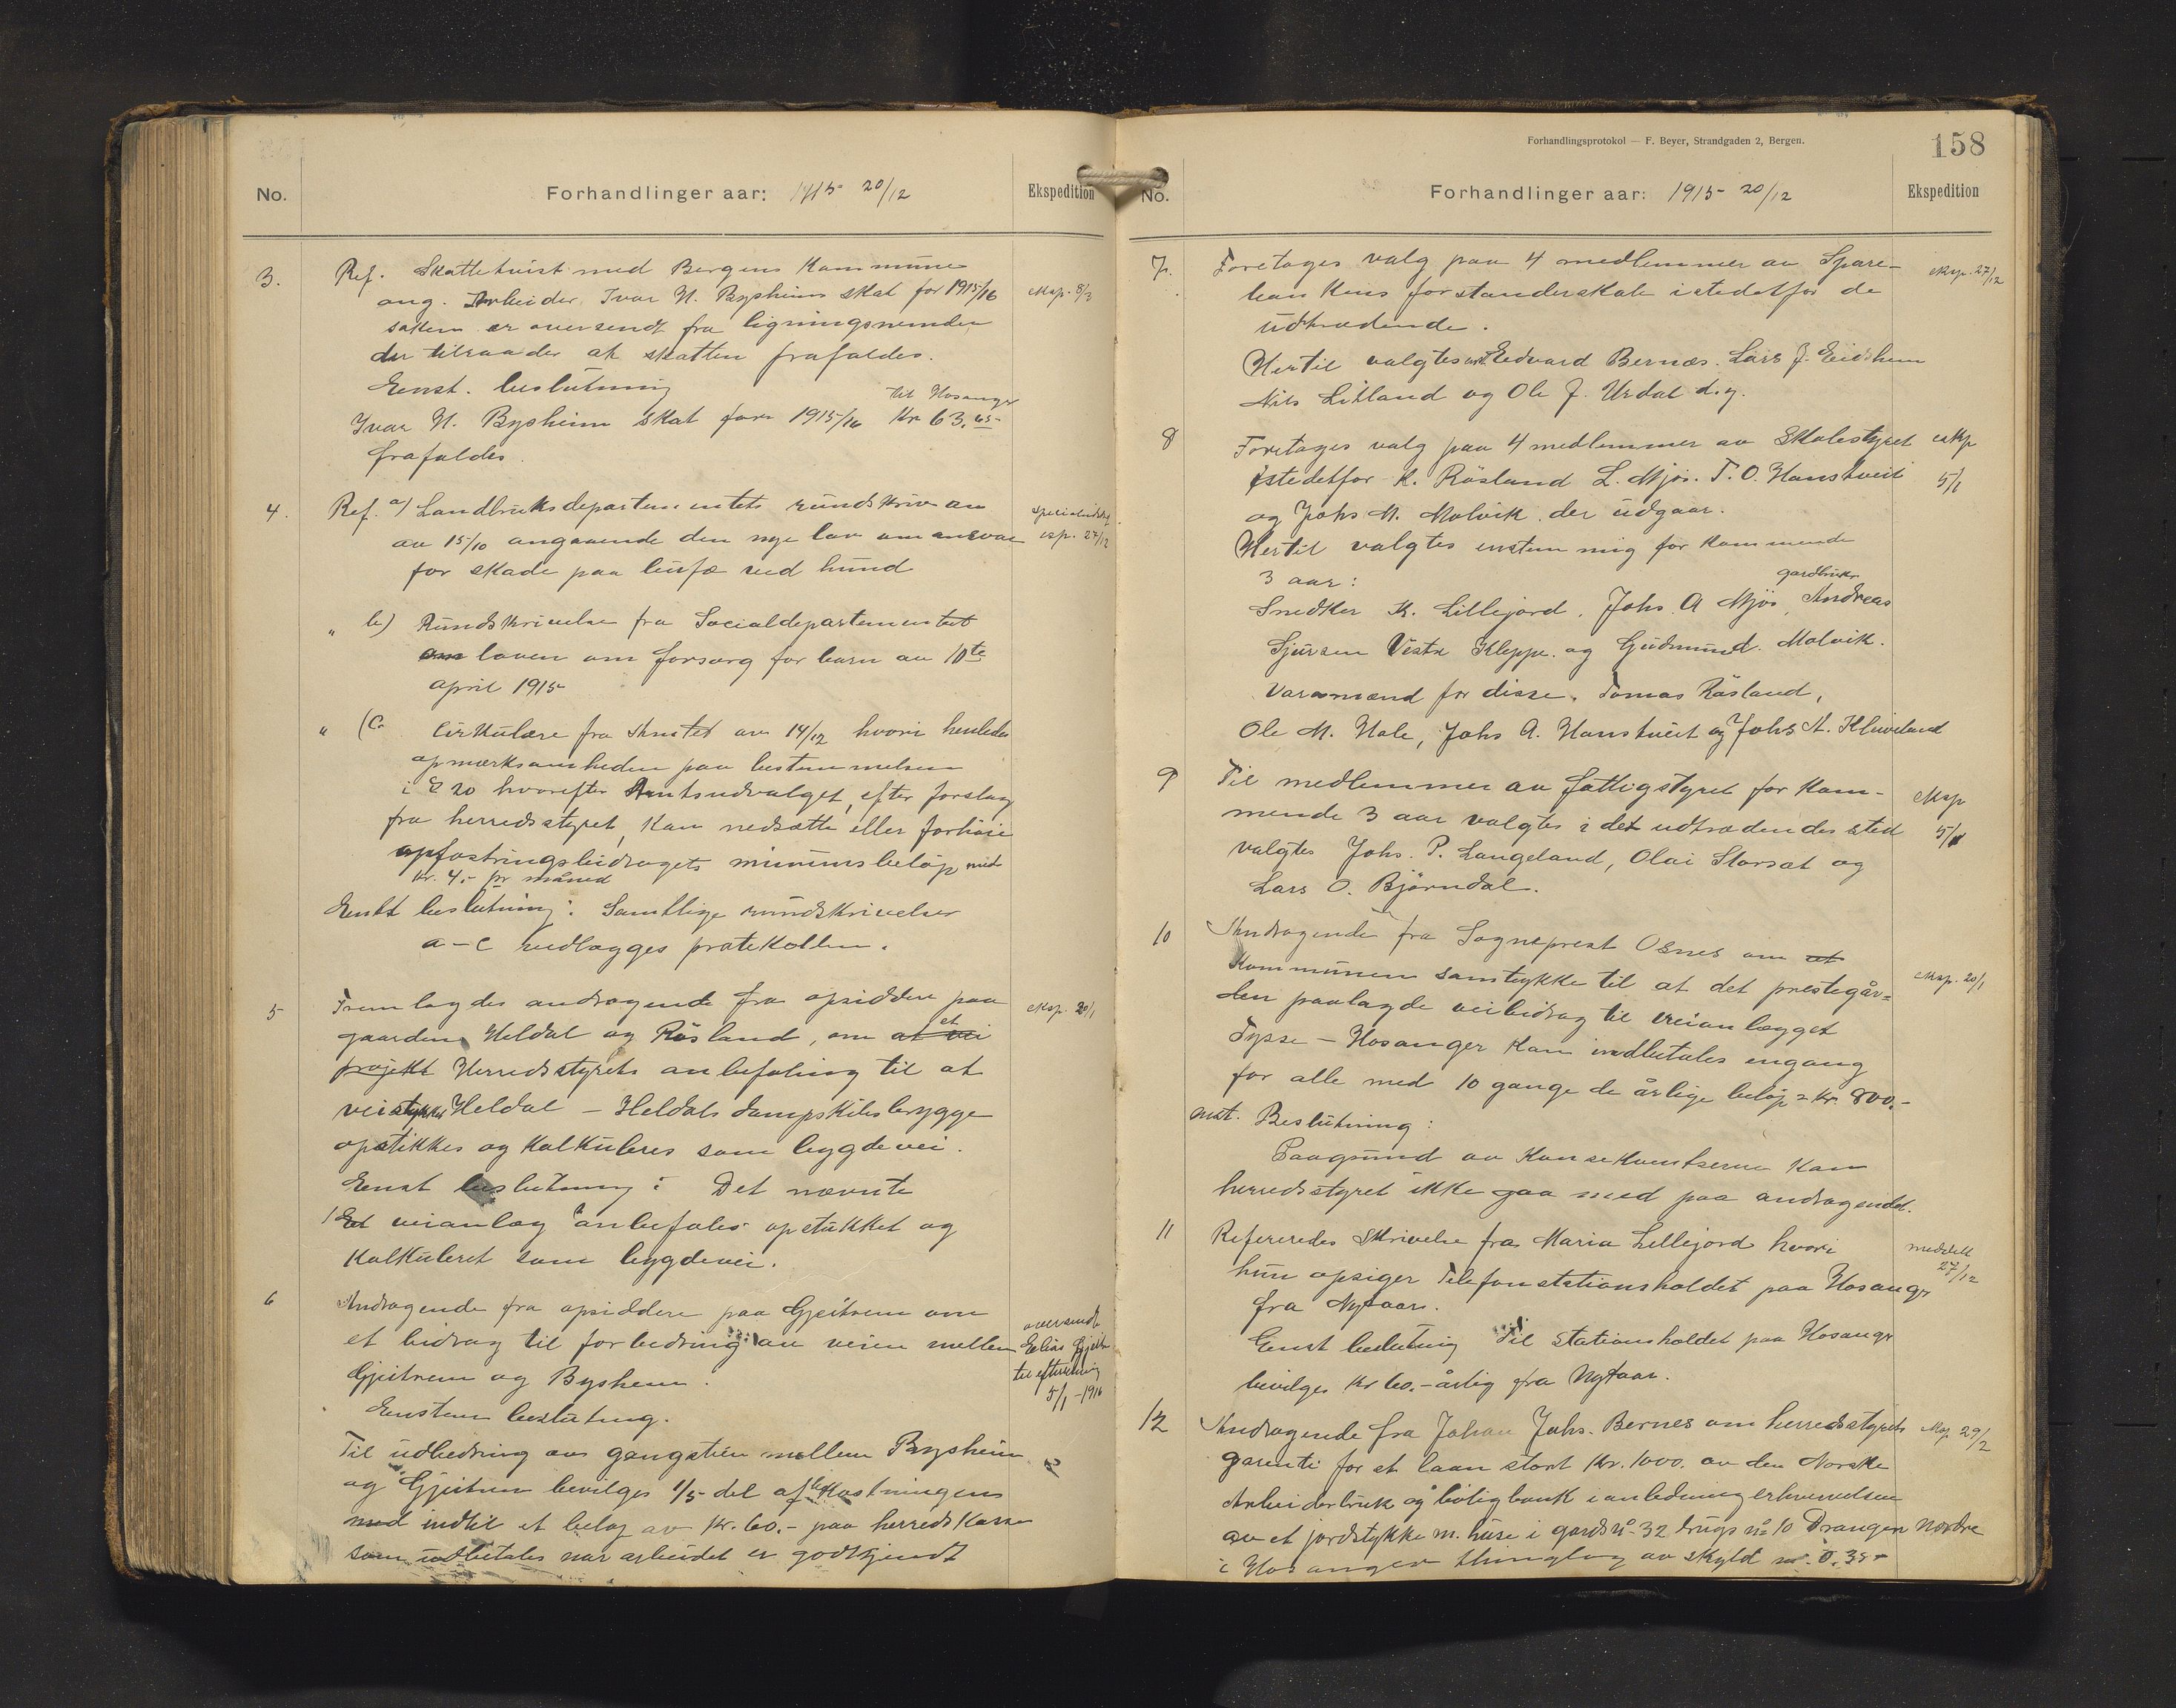 No. Forhandlinger aar: 1915 20/12 Ekspedition
3. Ref. Skattetvist med Bergens Kommune
ang. Arbeider Ivar N. Bysheims skat for 1915/16 eksp. 8/3
saken er oversendt fra ligningsnemnden
der tilraader at skatten frafaldes.
Enst. beslutning
til Hosanger
Ivar N. Bysheim skat for 1915/16 Kr 63.65
frafaldes.
4. Ref. a) Landbruksdepartementets rundskriv
av 15/10 angaaende den nye lov om ansvar esp. 27/12
for skade paa bufæ ved hund
" b) Rundskrivelse fra Socialdepartementet
om loven om forsorg for barn av 10te
april 1915
" (c. Cirkulære fra Amtet av 14/12 hvori henledes
opmærksomheden paa bestemmelsen
i § 20 hvorefter Amtsudvalget, efter forslag
fra herredsstyret, kan nedsætte eller forhøie
opfostringsbidragets minimsbeløp med
Kr. 4.- pr måned
Enst beslutning: Samtlige rundskrivelser
a-c vedlægges protokollen.
5 Fremlagdes andragende fra opsiddere paa eksp. 20/1
gaardene Heldal og Räsland, om at et vei
projekt Herredsstyrets anbefaling til at
veistykket Heldal - Heldals dampskibsbrygge
opstikkes og kalkuleres som bygdevei.
Enst beslutning: Det nævnte
veianlæg anbefales opstukket og
kalkuleret som bygdevei.
6 Andragende fra opsiddere paa Gjeitrem om
oversendt
et bidrag til forbedring av veien mellem Elias Gjeitr
Gjeitrem og Byshem. til efterretning
5/1 - 1916
Enstem beslutning.
Til udbedring av gangstien mellem Bysheim
og Gjeitrem bevilges 1/5 del af kostningens
med indtil et beløp av Kr. 60.- paa herredskassen
som udbetales når arbeidet er godkjendt
Forhandlingsprotokol — F. Beyer, Strandgaden 2, Bergen.
158
No. Forhandlinger aar: 1915 20/12 Ekspedition
7. Foretages valg paa 4 medlemmer av Spare- eksp. 27/12
bankens forstanderskab istedetfor de
udtrædende.
Hertil valgtes Edvard Bernæs. Lars J. Eidshem
Nils Litland og Ole J. Urdal d.y.
8 Foretages valg paa 4 medlemmer av Skolestyret eksp
istedetfor K. Räsland L. Mjøs. T. O. Hanstveit 5/1
og Johs M. Molvik der udgaar.
Hertil valgtes enstemmig for kommende
3 aar: gardbruker
Snedker K. Lillejord, Johs. A Mjøs, Andreas
Sjursen Vestre Kleppe. og Gudmund Molvik.
Varamænd for disse. Tomas Räsland,
Ole M. Hole, Johs A. Hanstveit og Johs A. Kleiveland
9 Til medlemmer av fattigstyret for kom- eksp
mende 3 aar valgtes i det udtrædendes sted 5/1
valgtes Johs. P. Langeland, Olai Storsæt og
Lars O. Bjørndal.
10 Andragende fra Sogneprest Osnes om at
kommunen samtykke til at det prestegår= eksp. 20/1
den paalagde veibidrag til veianlægget
Tysse - Hosanger kan indbetales engang
for alle med 10 gange de årlige beløp = Kr. 800.-
enst. Beslutning:
Paagrund av Konsekventserne kan
herredsstyret ikke gaa med paa andragendet.
11 Refereredes skrivelse fra Maria Lillejord hvori meddelt
hun opsiger Telefonstationsholdet paa Hosanger 27/12
fra Nytaar.
Enst beslutning Til stationsholdet paa Hosanger
bevilges Kr 60.- årlig fra Nytaar.
12 Andragende fra Johan Johs. Bernes om herredsstyrets eksp 29/2
garenti for et laan stort Kr. 1000. av den Norske
Arbeiderbruk og boligbank i anledning erhvervelsen
av et jordstykke m. huse i gards nº 32 brugs nº 10 Drangen Nordre
i Hosanger thinglag av skyld m. 0.35